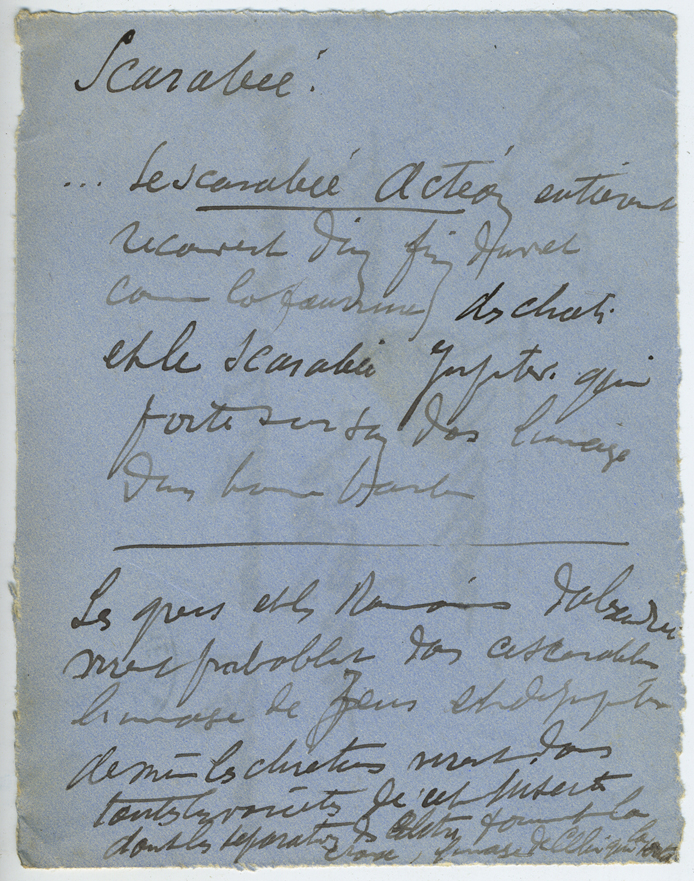 Scarabée.
... Le scarabée Actéon entièrement
recouvert d'un fin duvet
comme la fourrure des chats
et le scarabée Jupiter. qui
porte sur son dos l'image
d'un homme barbu
Les grecs et les Romains d'alexandrie
virent probablement dans ces scarabées
l'image de Zeus et de Jupiter
de même les chretiens virent dans
toutes les variétés de cet insecte
dont les separations des elytres forment la
croix, l'image de Celui qui la porta